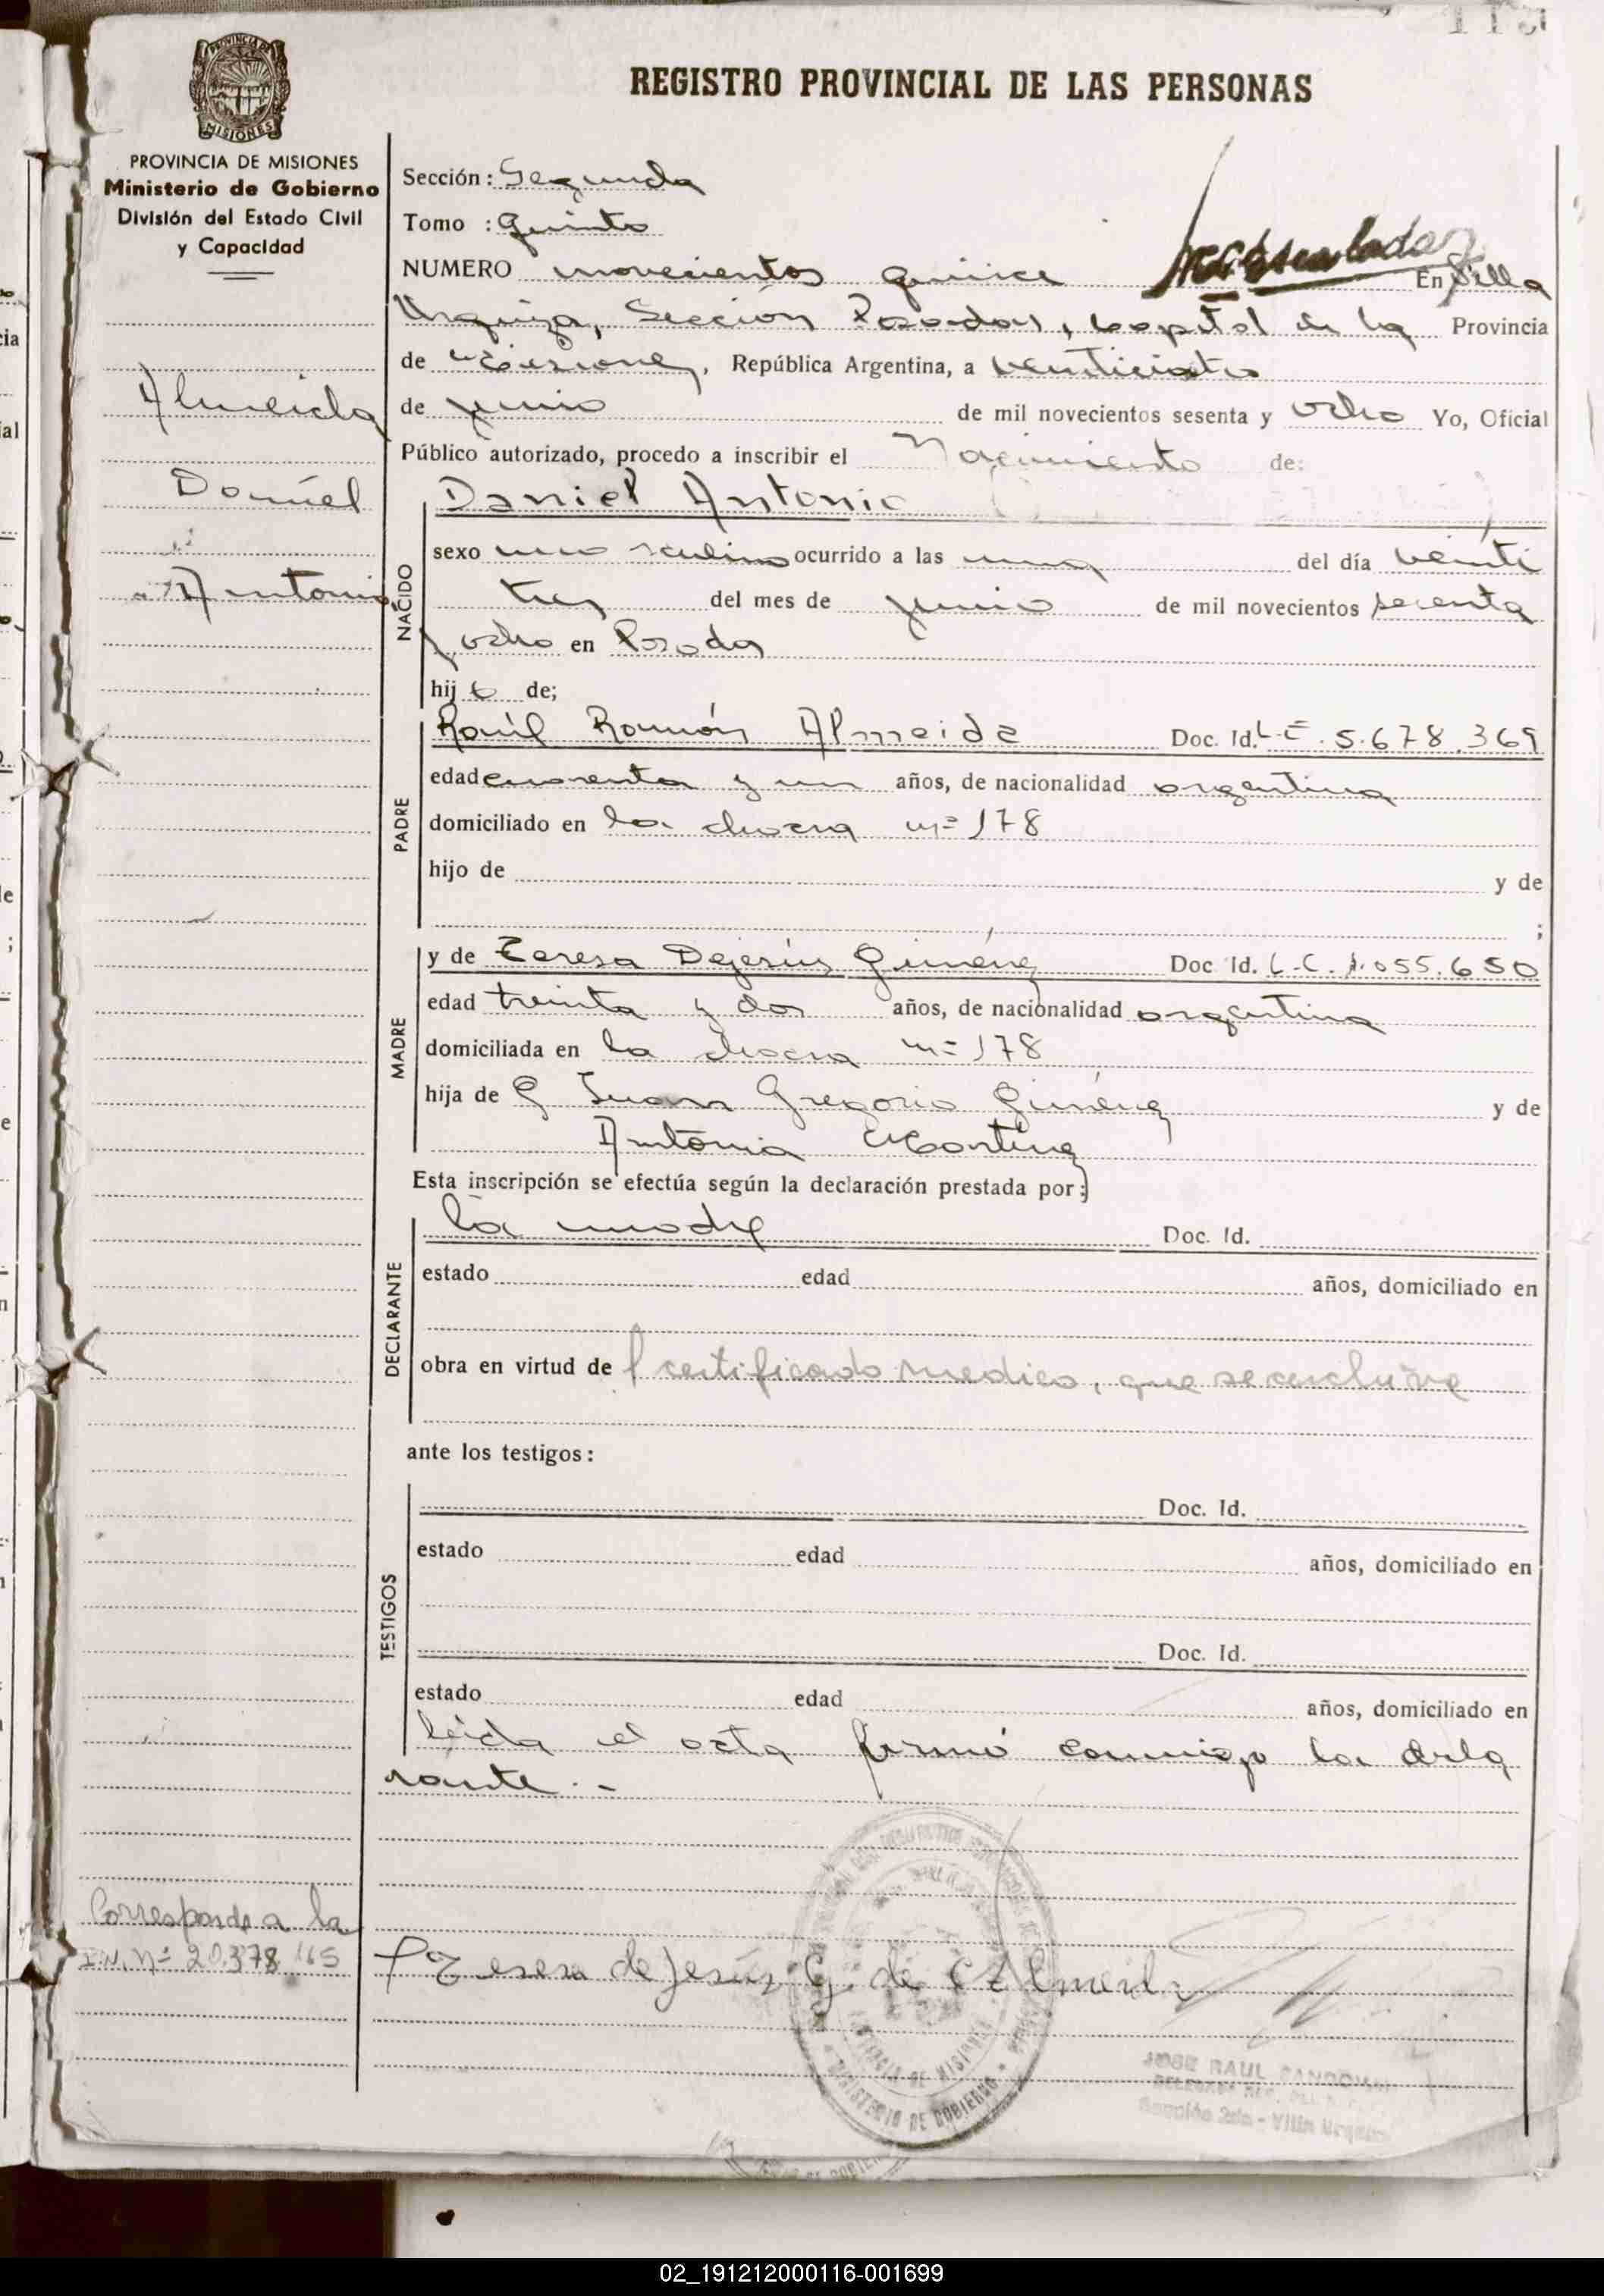 115
PROVINCIA DE MISIONES
REGISTRO PROVINCIAL DE LAS PERSONAS
PROVINCIA DE MISIONES
Ministerio de Gobierno
División del Estado Civil
y Capacidad
Almeida
Daniel
Antonio
Sección: Segunda
Tomo : Quinto
NUMERO novecientos quince En Villa
Urquiza, Sección Posadas, capital de la Provincia
de Misiones, República Argentina, a
de junio de mil novecientos sesenta y ocho Yo, Oficial
Público autorizado, procedo a inscribir el Nacimiento de:
NACIDO
Daniel Antonio
sexo masculino ocurrido a las una del día veinti
tres del mes de junio de mil novecientos sesenta
y ocho en Posadas
hij o de;
PADRE
Raúl Ramón Almeida Doc. Id. L-E. 5.678.369
edad cuarenta y un años, de nacionalidad argentina
domiciliado en la chacra nº 178
hijo de y de
;
MADRE
y de Teresa Dejesús Giménez Doc Id. L-C. 1.055.650
edad treinta y dos años, de nacionalidad argentina
domiciliada en la chacra nº 178
hija de Juan Gregorio Giménez y de
Antonia Martínez
Esta inscripción se efectúa según la declaración prestada por:
DECLARANTE
la madre Doc. Id.
estado edad años, domiciliado en
obra en virtud de l certificado medico, que se archiva
ante los testigos:
TESTIGOS
Doc. Id.
estado edad años, domiciliado en
Doc. Id.
estado edad años, domiciliado en
leída el acta firmó conmigo la decla
rante.-
Corresponde a la
I.N. Nº 20.378.165
Teresa de Jesús G. de Almeida
MINISTERIO DE GOBIERNO
PROVINCIA DE MISIONES
JOSE RAUL SANDOVAL
Sección 2da - Villa Urquiza
02_191212000116-001699